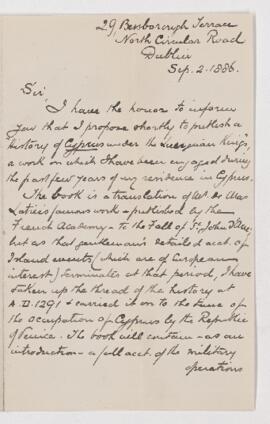 29, Bessborough Terrace
North Circular Road
Dublin
Sep. 2. 1886.
Sir,
I have the honor to inform
you that I propose shortly to publish a
History of Cyprus under the Lusignan Kings,
a work on which I have been engaged during
the past few years of my residence in Cyprus.
The book is a translation of M. de Mas
Latrie's famous work - published by the
French Academy - to the Fall of St. John D'Acre,
but as that gentleman's detailed acct. of
Island events (which are of European
interest) terminates at that period, I have
taken up the thread of the history at
A.D. 1291 & carried it on to the time of
the occupation of Cyprus by the Republic
of Venice. The book will contain - as an
introduction - a full acct. of the military
operations